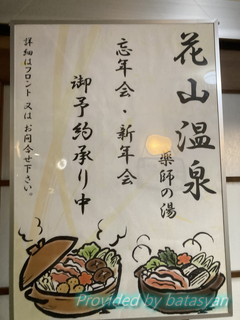 花山温泉
薬師の湯
忘年会・新年会
御予約承り中
詳細はフロント又はお問合せ下さい。
Provided by batasyan